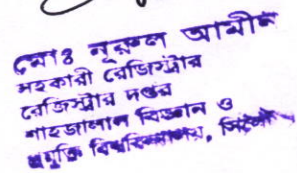 মোঃ নূরুল আমীন
সহকারী রেজিস্ট্রার
রেজিস্ট্রার দপ্তর
শাহজালাল বিজ্ঞান ও
প্রযুক্তি বিশ্ববিদ্যালয়, সিলেট